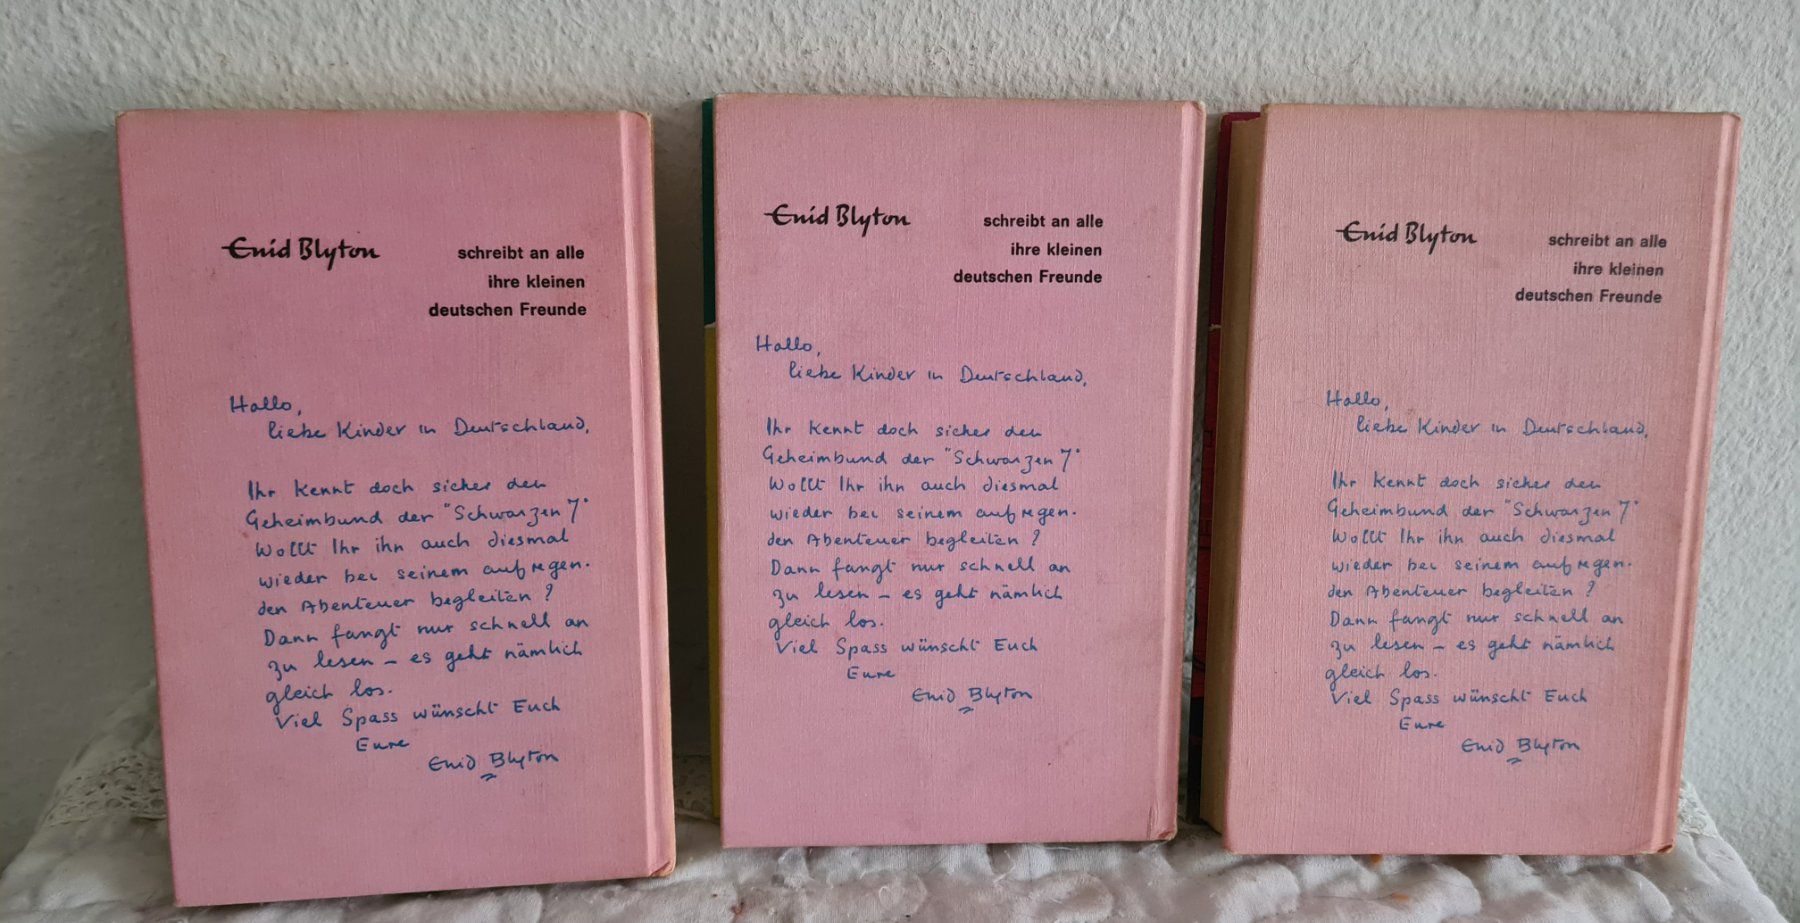 Enid Blyton
schreibt an alle
ihre kleinen
deutschen Freunde
Hallo,
liebe Kinder in Deutschland,
Ihr kennt doch sicher den
Geheimbund der "Schwarzen 7"
Wollt Ihr ihn auch diesmal
wieder bei seinem aufregen-
den Abenteuer begleiten?
Dann fangt nur schnell an
zu lesen - es geht nämlich
gleich los.
Viel Spass wünscht Euch
Eure
Enid Blyton
Enid Blyton
schreibt an alle
ihre kleinen
deutschen Freunde
Hallo,
liebe Kinder in Deutschland,
Ihr kennt doch sicher den
Geheimbund der "Schwarzen 7"
Wollt Ihr ihn auch diesmal
wieder bei seinem aufregen-
den Abenteuer begleiten?
Dann fangt nur schnell an
zu lesen - es geht nämlich
gleich los.
Viel Spass wünscht Euch
Eure
Enid Blyton
Enid Blyton
schreibt an alle
ihre kleinen
deutschen Freunde
Hallo,
liebe Kinder in Deutschland,
Ihr kennt doch sicher den
Geheimbund der "Schwarzen 7"
Wollt Ihr ihn auch diesmal
wieder bei seinem aufregen-
den Abenteuer begleiten?
Dann fangt nur schnell an
zu lesen - es geht nämlich
gleich los.
Viel Spass wünscht Euch
Eure
Enid Blyton